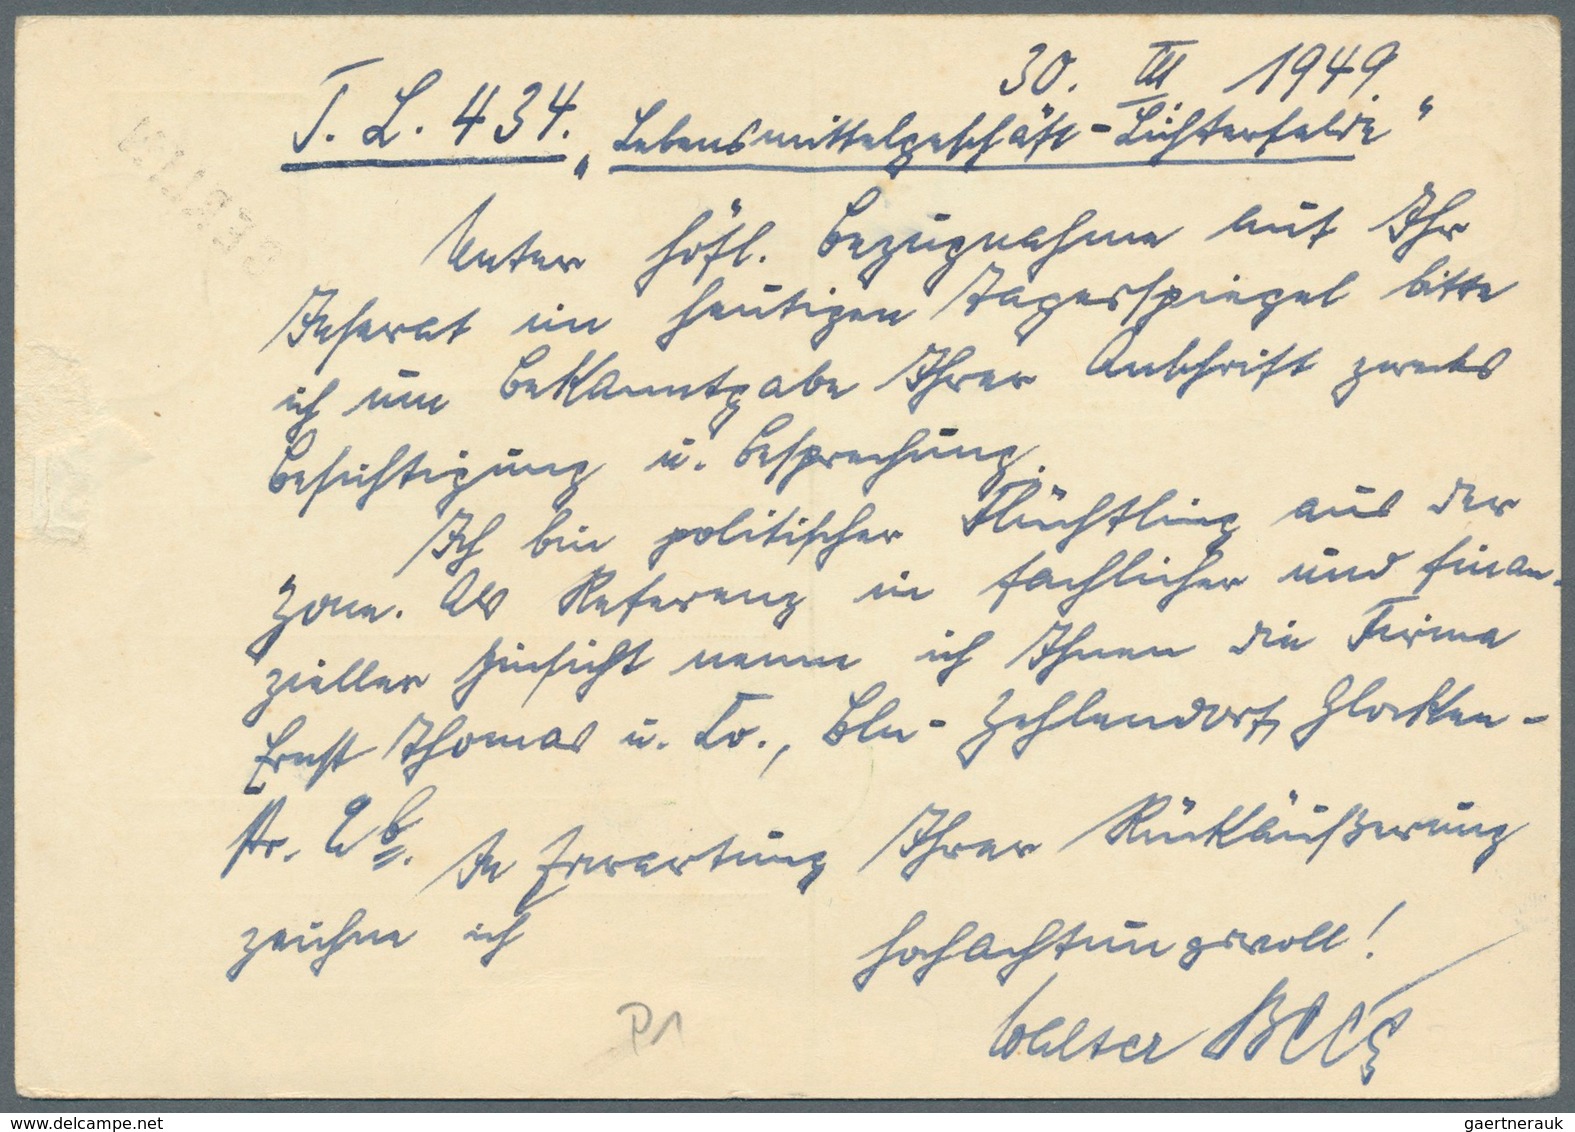 30. III 1949.
T. L. 434. „Lebensmittelgeschäft-Lichterfelde“
Unter höfl. Bezugnahme auf Ihr
Inserat im heutigen Tagesspiegel bitte
ich um Bekanntgabe Ihrer Anschrift zwecks
Besichtigung u. Besprechung.
Ich bin politischer Flüchtling aus der
Zone. Als Referenz in fachlicher und finan-
zieller Hinsicht nenne ich Ihnen die Firma
Ernst Thomas u. Co., Bln-Zehlendorf, Glocken-
str. b.
In Erwartung Ihrer Rückäußerung
zeichne ich
hochachtungsvoll!
Walter
P1
gaertnerauk